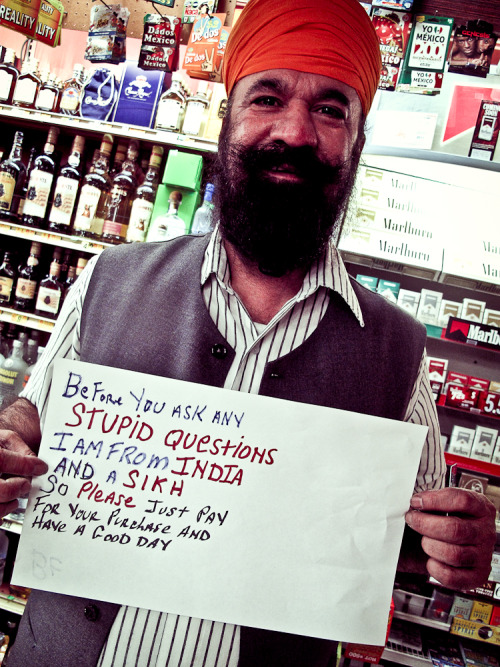 REALITY
REALITY
Dados
Mexico
YO!
MEXICO!
Marlboro
Marlboro
Marlboro
BEFORE YOU ASK ANY
STUPID QUESTIONS
I AM FROM INDIA
AND A SIKH
SO PLEASE JUST PAY
FOR YOUR PURCHASE AND
HAVE A GOOD DAY